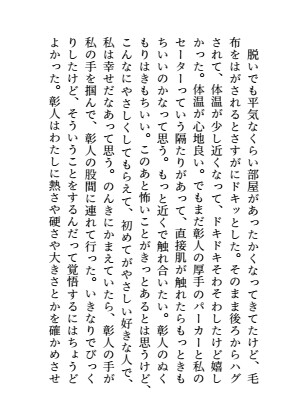 脱いでも平気なくらい部屋があったかくなってきてたけど、毛
布をはがされるとさすがにドキッとした。そのまま後ろからハグ
されて、体温が少し近くなって、ドキドキそわそわしたけど嬉し
かった。体温が心地良い。でもまだ彰人の厚手のパーカーと私の
セーターっていう隔たりがあって、直接肌が触れたらもっときも
ちいいのかなって思う。もっと近くで触れ合いたい。彰人のぬく
もりはきもちいい。このあと怖いことがきっとあるとは思うけど、
こんなにやさしくしてもらえて、初めてがやさしい好きな人で、
私は幸せだなあって思う。のんきにかまえていたら、彰人の手が
私の手を掴んで、彰人の股間に連れて行った。いきなりでびっく
りしたけど、そういうことをするんだって覚悟するにはちょうど
よかった。彰人はわたしに熱さや硬さや大きさとかを確かめさせ